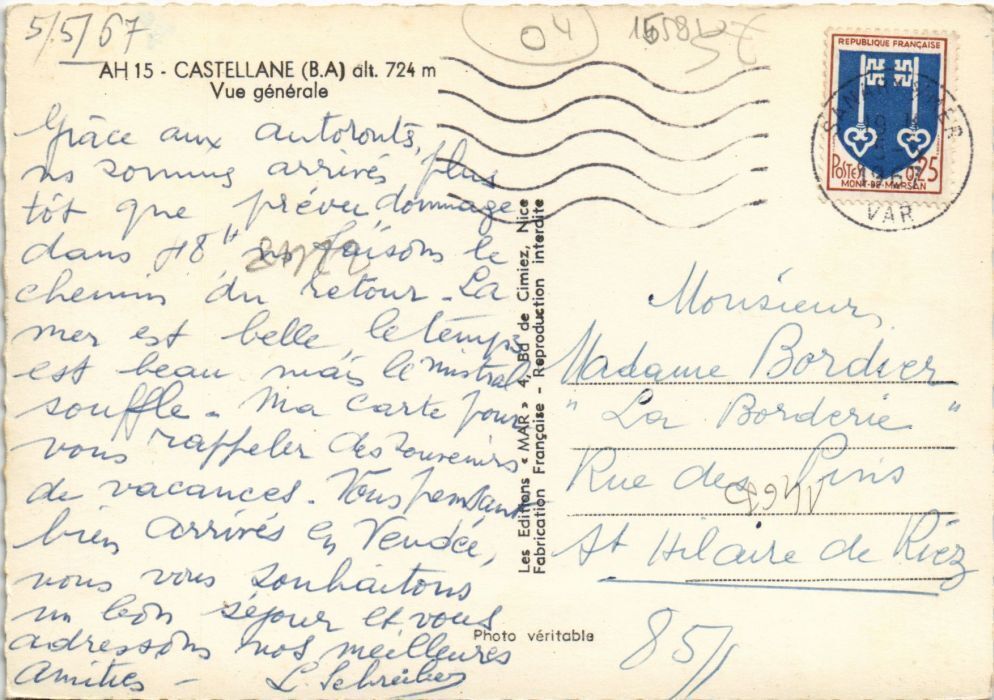 5/5/67
04
AH 15 - CASTELLANE (B.A) alt. 724 m
Vue générale
Grâce aux autoroutes,
ns sommes arrivés plus
tôt que prévu dommage
dans 48 H ns faisons le
chemin du retour - La
mer est belle, le temps
est beau mais le mistral
souffle - Ma carte pour
vous rappeler des souvenirs
de vacances - Vous pensant
bien arrivés en Vendée,
nous vous souhaitons
un bon séjour et vous
adressons nos meilleures
Amitiés - L. Schreiber
Les Editions « MAR » 4, Bd de Cimiez, Nice
Fabrication Française - Reproduction interdite
Photo véritable
REPUBLIQUE FRANÇAISE
POSTES 0,25
MONT-DE-MARSAN
SANARY S MER
1967
VAR
Monsieur,
Madame Bordier
" La Borderie "
Rue des Pins
St Hilaire de Riez
85